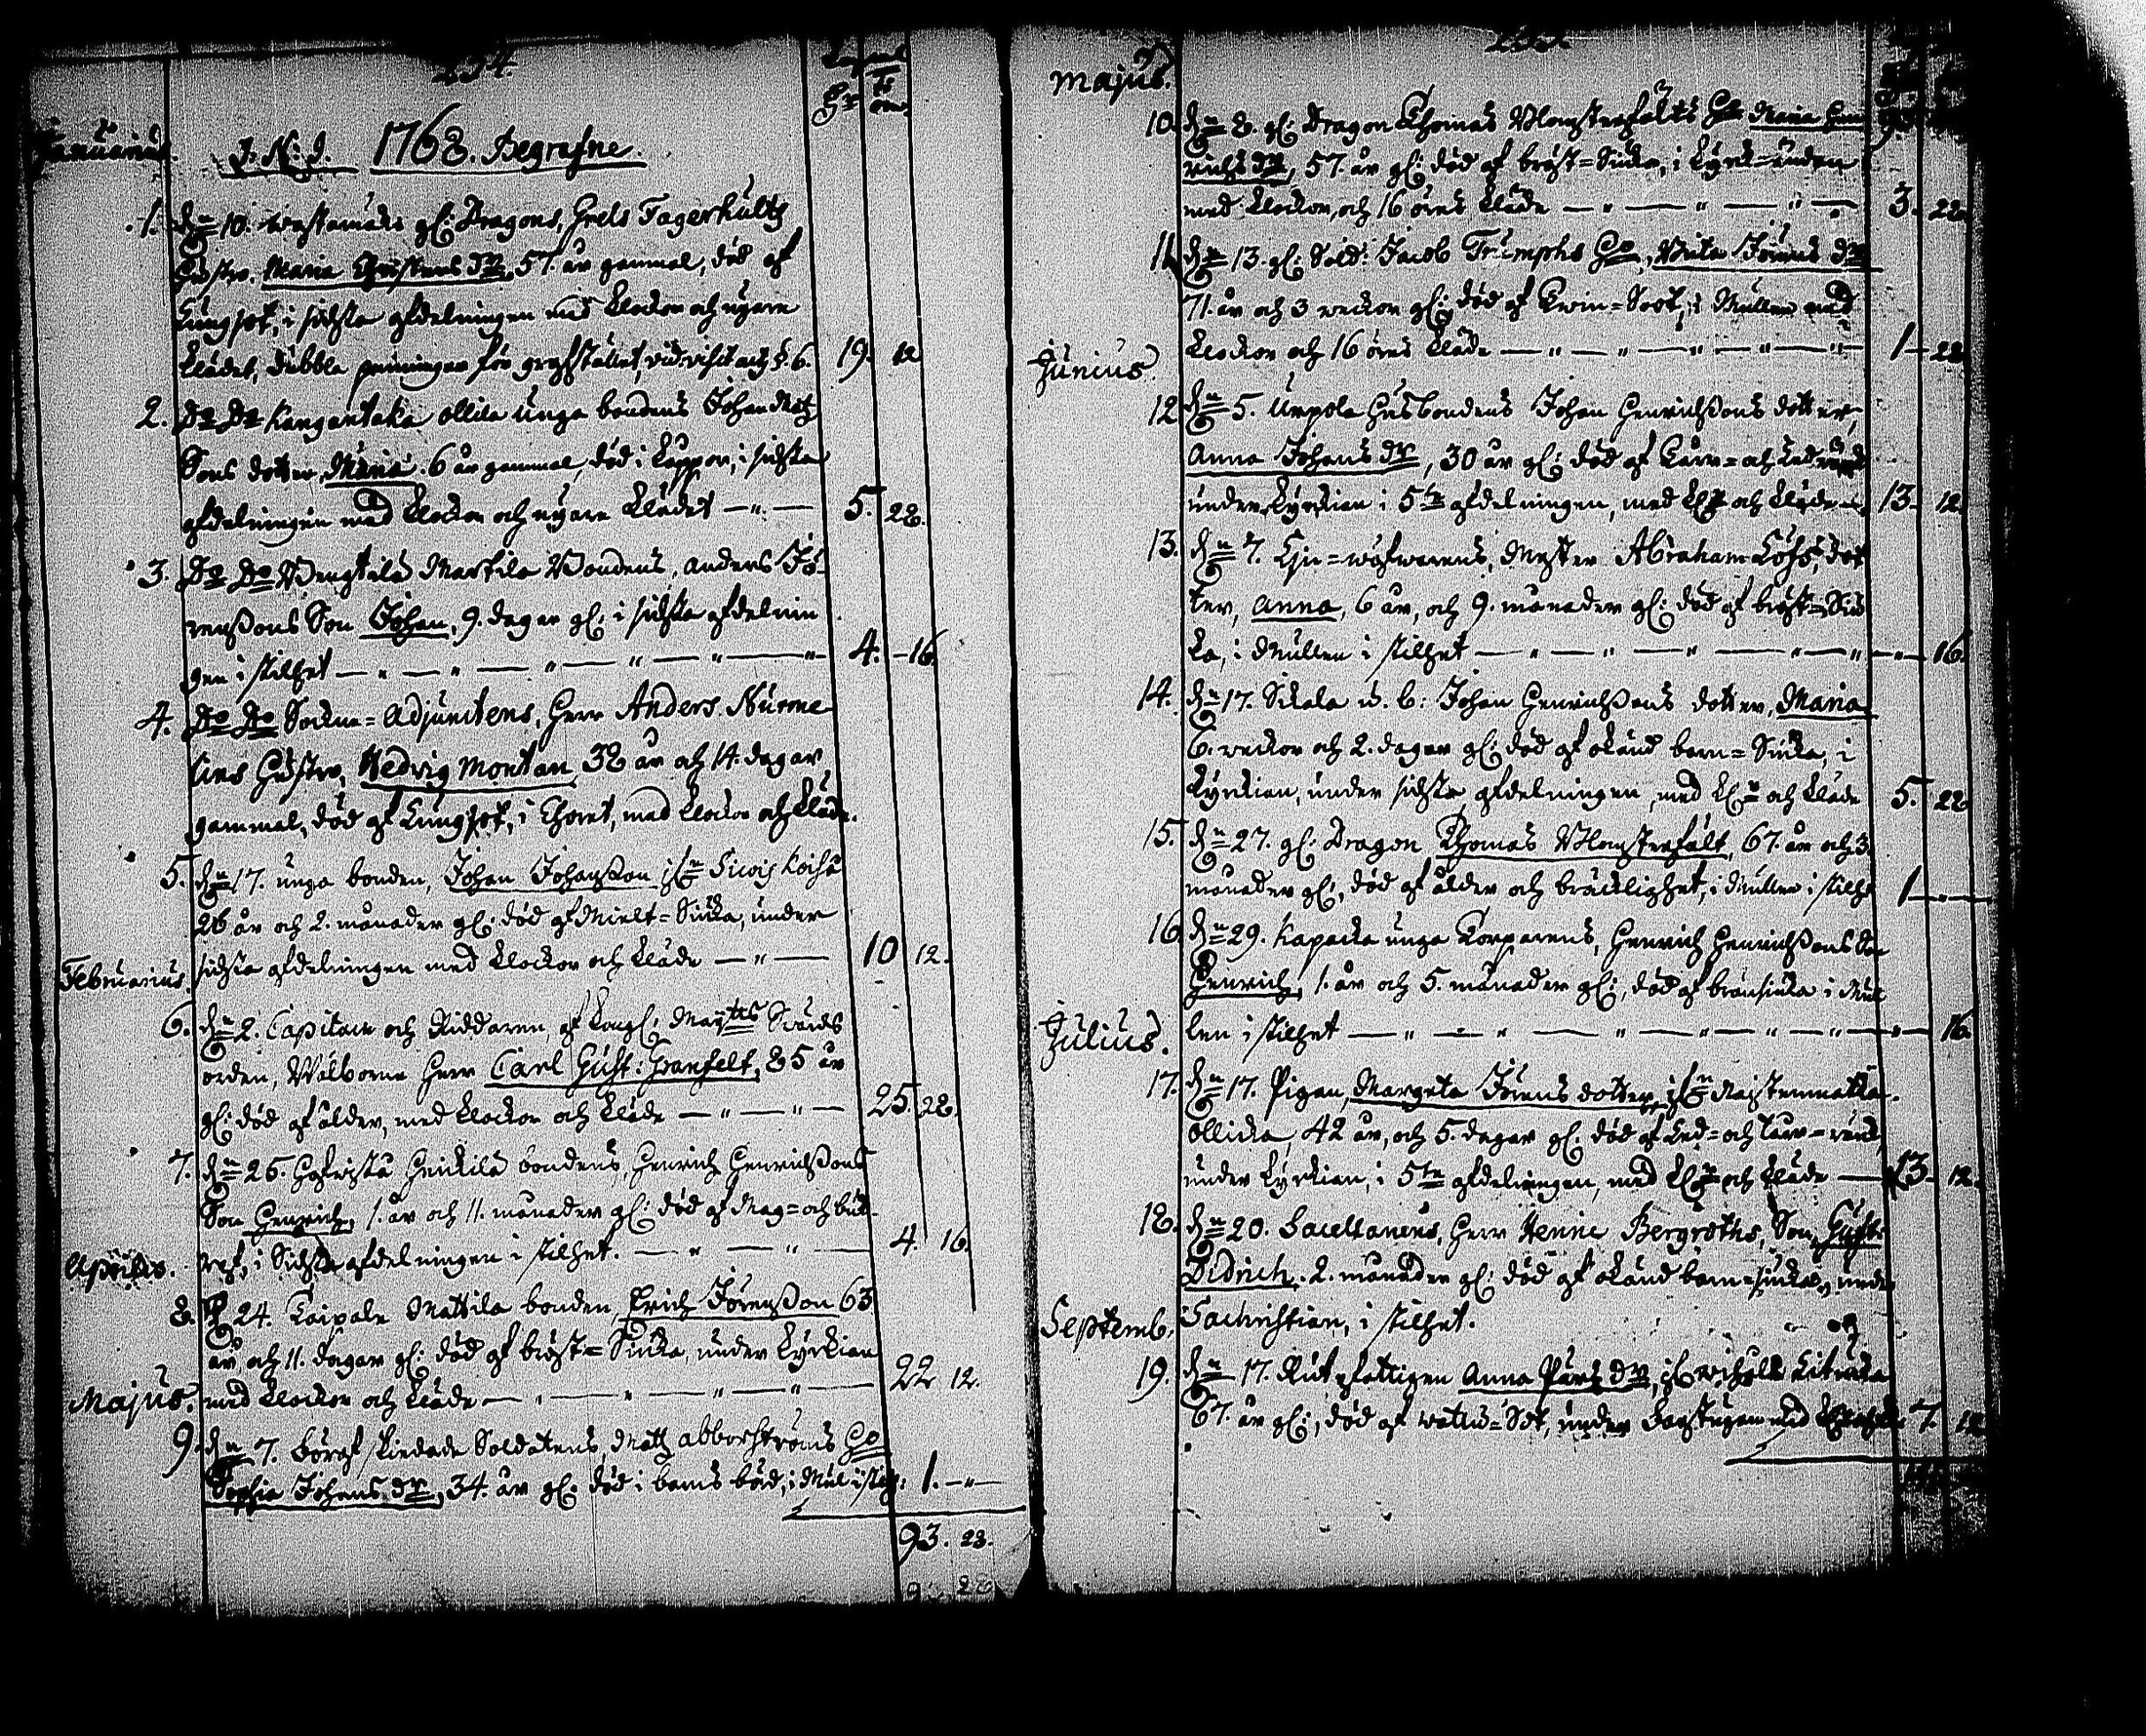 234.
Januarius.
J. N. J. 1768. Begrafne.
1. d:n 10. gl: Dragons, Grels Fagerhultz
hustro, Maria Christens dr, 57. år gammal, död af
Lungsot, i sidsta afdelningen med klockor och nyare
klädet, dubbla penningar för grafstället, vid. visit. act. §. 6. 19. 12
2. Do Do Kangantaka ollila unga bondens Johan Matz
Sons dotter, Maria. 6 år gammal, död i koppor, i sidsta
afdelningen med klockor och nyare klädet — " — 5. 28.
3. Do Do Bengtilä Markila Bondens, Anders Jö-
renssons Son Johan, 9. dagar gl: i sidsta afdelnin
gen i stilhet — " — " — " — " — " 4. 16.
4. Do Do Sockne-Adjunctens, Herr Anders Nurme-
lins Hustro, Hedvig Montan 38 år och 14. dagar
gammal, död af Lungsot, i Choret, med klockor och kläde.
5. d:n 17. unga bonden, Johan Johansson ifrn Sicois Koisu
26 år och 2. månader gl: död af Mielt-Siuka, under
sidsta afdelningen med klockor och kläde — " — 10 12.
Februarius.
6. d:n 2. Capitain och Riddaren af Kongl: Maijtts Svärds
orden, Välborne Herr Carl Gust: Granfelt, 85 år
gl: död af ålder, med klockor och kläde — " — " — 25. 28.
7. d:n 25. Heickilä bondens, Henrich Henrichssons
Son Henrich, 1. år och 11. månader gl: död af Mag- och buk-
ref, i Sidsta afdelningen i stilhet. — " — " — 4. 16.
Aprilis.
8. d:n 24. Kaipola Mattila bonden, Erich Jörensson 63
år och 11. dagar gl: död af bröst-Siuka, under kyrkian
med klockor och kläde — " — " — " — 22 12.
Majus.
9. d:n 7. Soldatens, Matz Abborströms Ho
Sophia Johans dr, 34. år gl: död i barns börd, i Mul: i stilh: 1. — " —
93. 28.
Majus.
10. d:n 8. gl: Dragon Thomas Blomsterfälts Ho Maria Hen
richs dr, 57. år gl: död af bröst-Siuka, i kyrk-ändan
med klockor, och 16 öres kläde — " — " — " — 3. 28
11. d:n 13. gl: Sold: Jacob Triumphs Ho, Brita Jörens dr
71. år och 3 veckor gl: död af Tvin-Soot, i Mullen med
klockor och 16 öres kläde — " — " — " — " — 1 — 28
Junius.
12. d:n 5. Urpola Husbondens Johan Henrichssons dotter,
Anna Johans dr, 30 år gl: död af Torr- och
under kyrkian i 5te afdelningen, med kl:r och kläde — 13. 12.
13. d:n 7. Lin-wäfvarens, Mäster Abraham Löfs, dot
ter, Anna, 6 år, och 9. månader gl: död af bröst-Siu
ka, i Mullen i stilhet — " — " — " — " — " — 16.
14. d:n 17. Sikala u. b: Johan Henrichssons dotter, Maria
6. veckor och 2. dagar gl: död af okänd barn-Siuka, i
kyrkian, under sidsta afdelningen, med kl:r och kläde 5. 28
15. d:n 27. gl: Dragon Thomas Blomsterfält, 67. år och 3.
månader gl:, död af ålder och bräcklighet, i Mullen i stilh: 1 — " —
16. d:n 29. Kapacka unga Torparens, Henrich Henrichssons Son
Henrich, 1. år och 5. månader gl:, död af bränsiuka i Mul
len i stilhet — " — " — " — " — " — " — 16.
Julius.
17. d:n 17. Pigan, Margeta Jörens dotter, ifrn
Ollicka, 42 år, och 5. dagar gl: död af Led- och Torr-
under kyrkian, i 5te afdelningen, med kl:r och kläde — 13. 12.
18. d:n 20. Sacellanens, Herr Henric Bergroths, Son, Gust:
Didrich. 2. månader gl: död af okänd barn-siuka, under
Sachristian, i stilhet.
Septemb.
19. d:n 17. Rut-fattigen Anna Pärs dr,
67. år gl:, död af watu-Sot, under med 7. 12